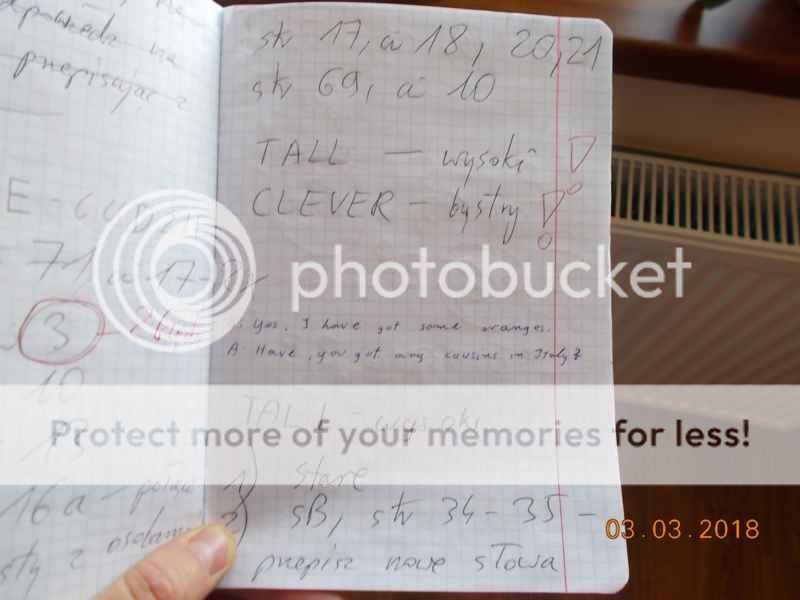 dpowiedz na
przepisując z
str 17, ć 18, 20, 21
str 69, ć 10
TALL — wysoki !
CLEVER — bystry !
E -
71 ć 17-
3
10
13
16a -
sty z osobami
photobucket
Yes, I have got some oranges.
A: Have you got any cousins in Italy?
Protect more of your memories for less!
TALL - wysoki
1) stare
2) SB, str 34-35 -
przepisz nowe słowa
03.03.2018